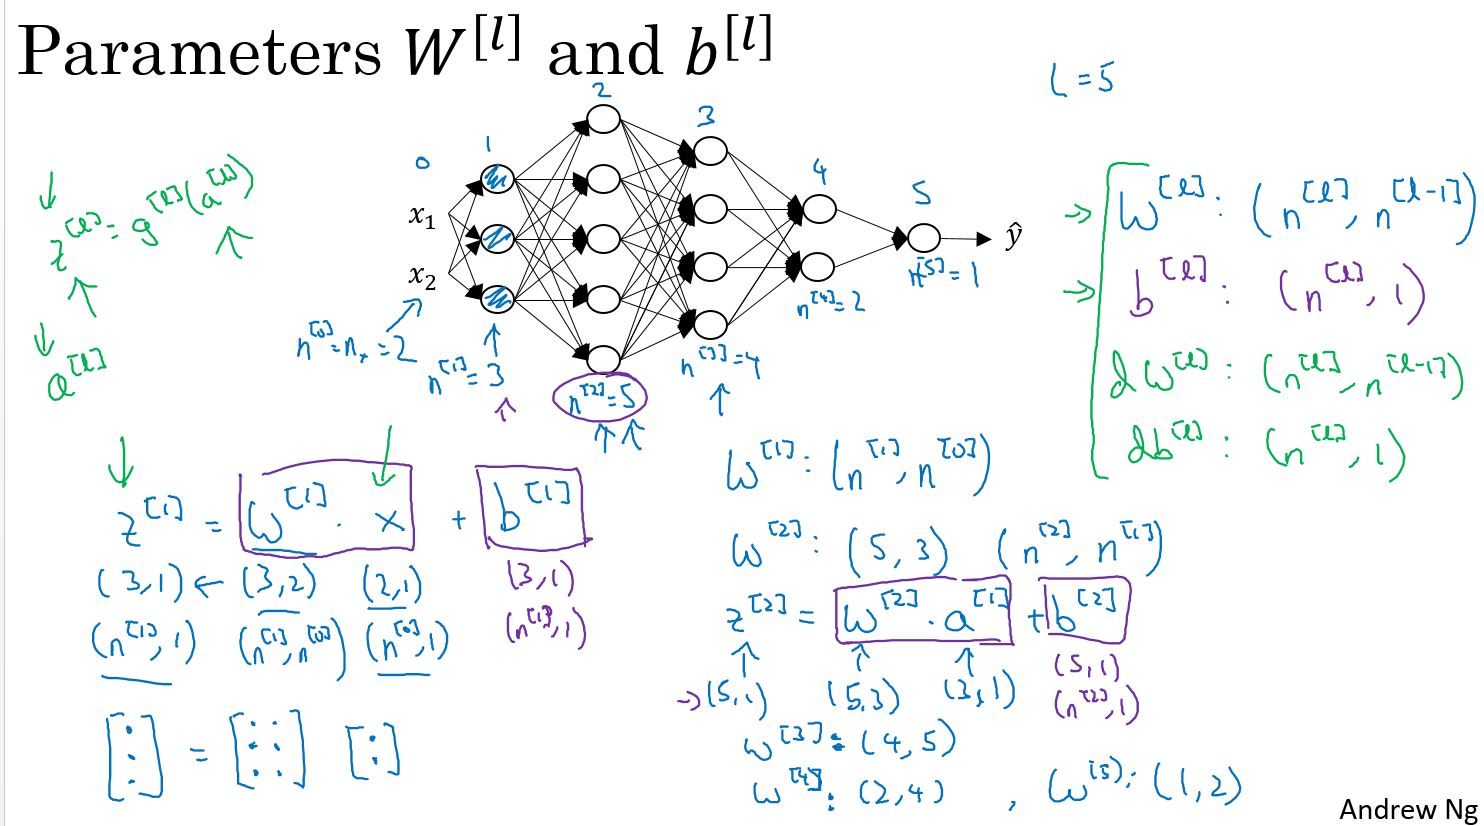 Parameters W^[l] and b^[l]
L = 5
0 1 2 3 4 5
x₁
x₂
ŷ
z^[l] = g^[l](a^[l])
a^[l]
n^[0] = nₓ = 2
n^[1] = 3
n^[2] = 5
n^[3] = 4
n^[4] = 2
n^[5] = 1
W^[l] : (n^[l], n^[l-1])
b^[l] : (n^[l], 1)
dW^[l] : (n^[l], n^[l-1])
db^[l] : (n^[l], 1)
z^[1] = W^[1] · x + b^[1]
(3,1) ← (3,2) (2,1) (3,1)
(n^[1], 1) (n^[1], n^[0]) (n^[0], 1) (n^[1], 1)
[⋮] = [: : :] [:]
W^[1] : (n^[1], n^[0])
W^[2] : (5, 3) (n^[2], n^[1])
z^[2] = W^[2] · a^[1] + b^[2]
→ (5,1) (5,3) (3,1) (5,1)
(n^[2], 1)
W^[3] : (4, 5)
W^[4] : (2,4) , W^[5] : (1,2)
Andrew Ng